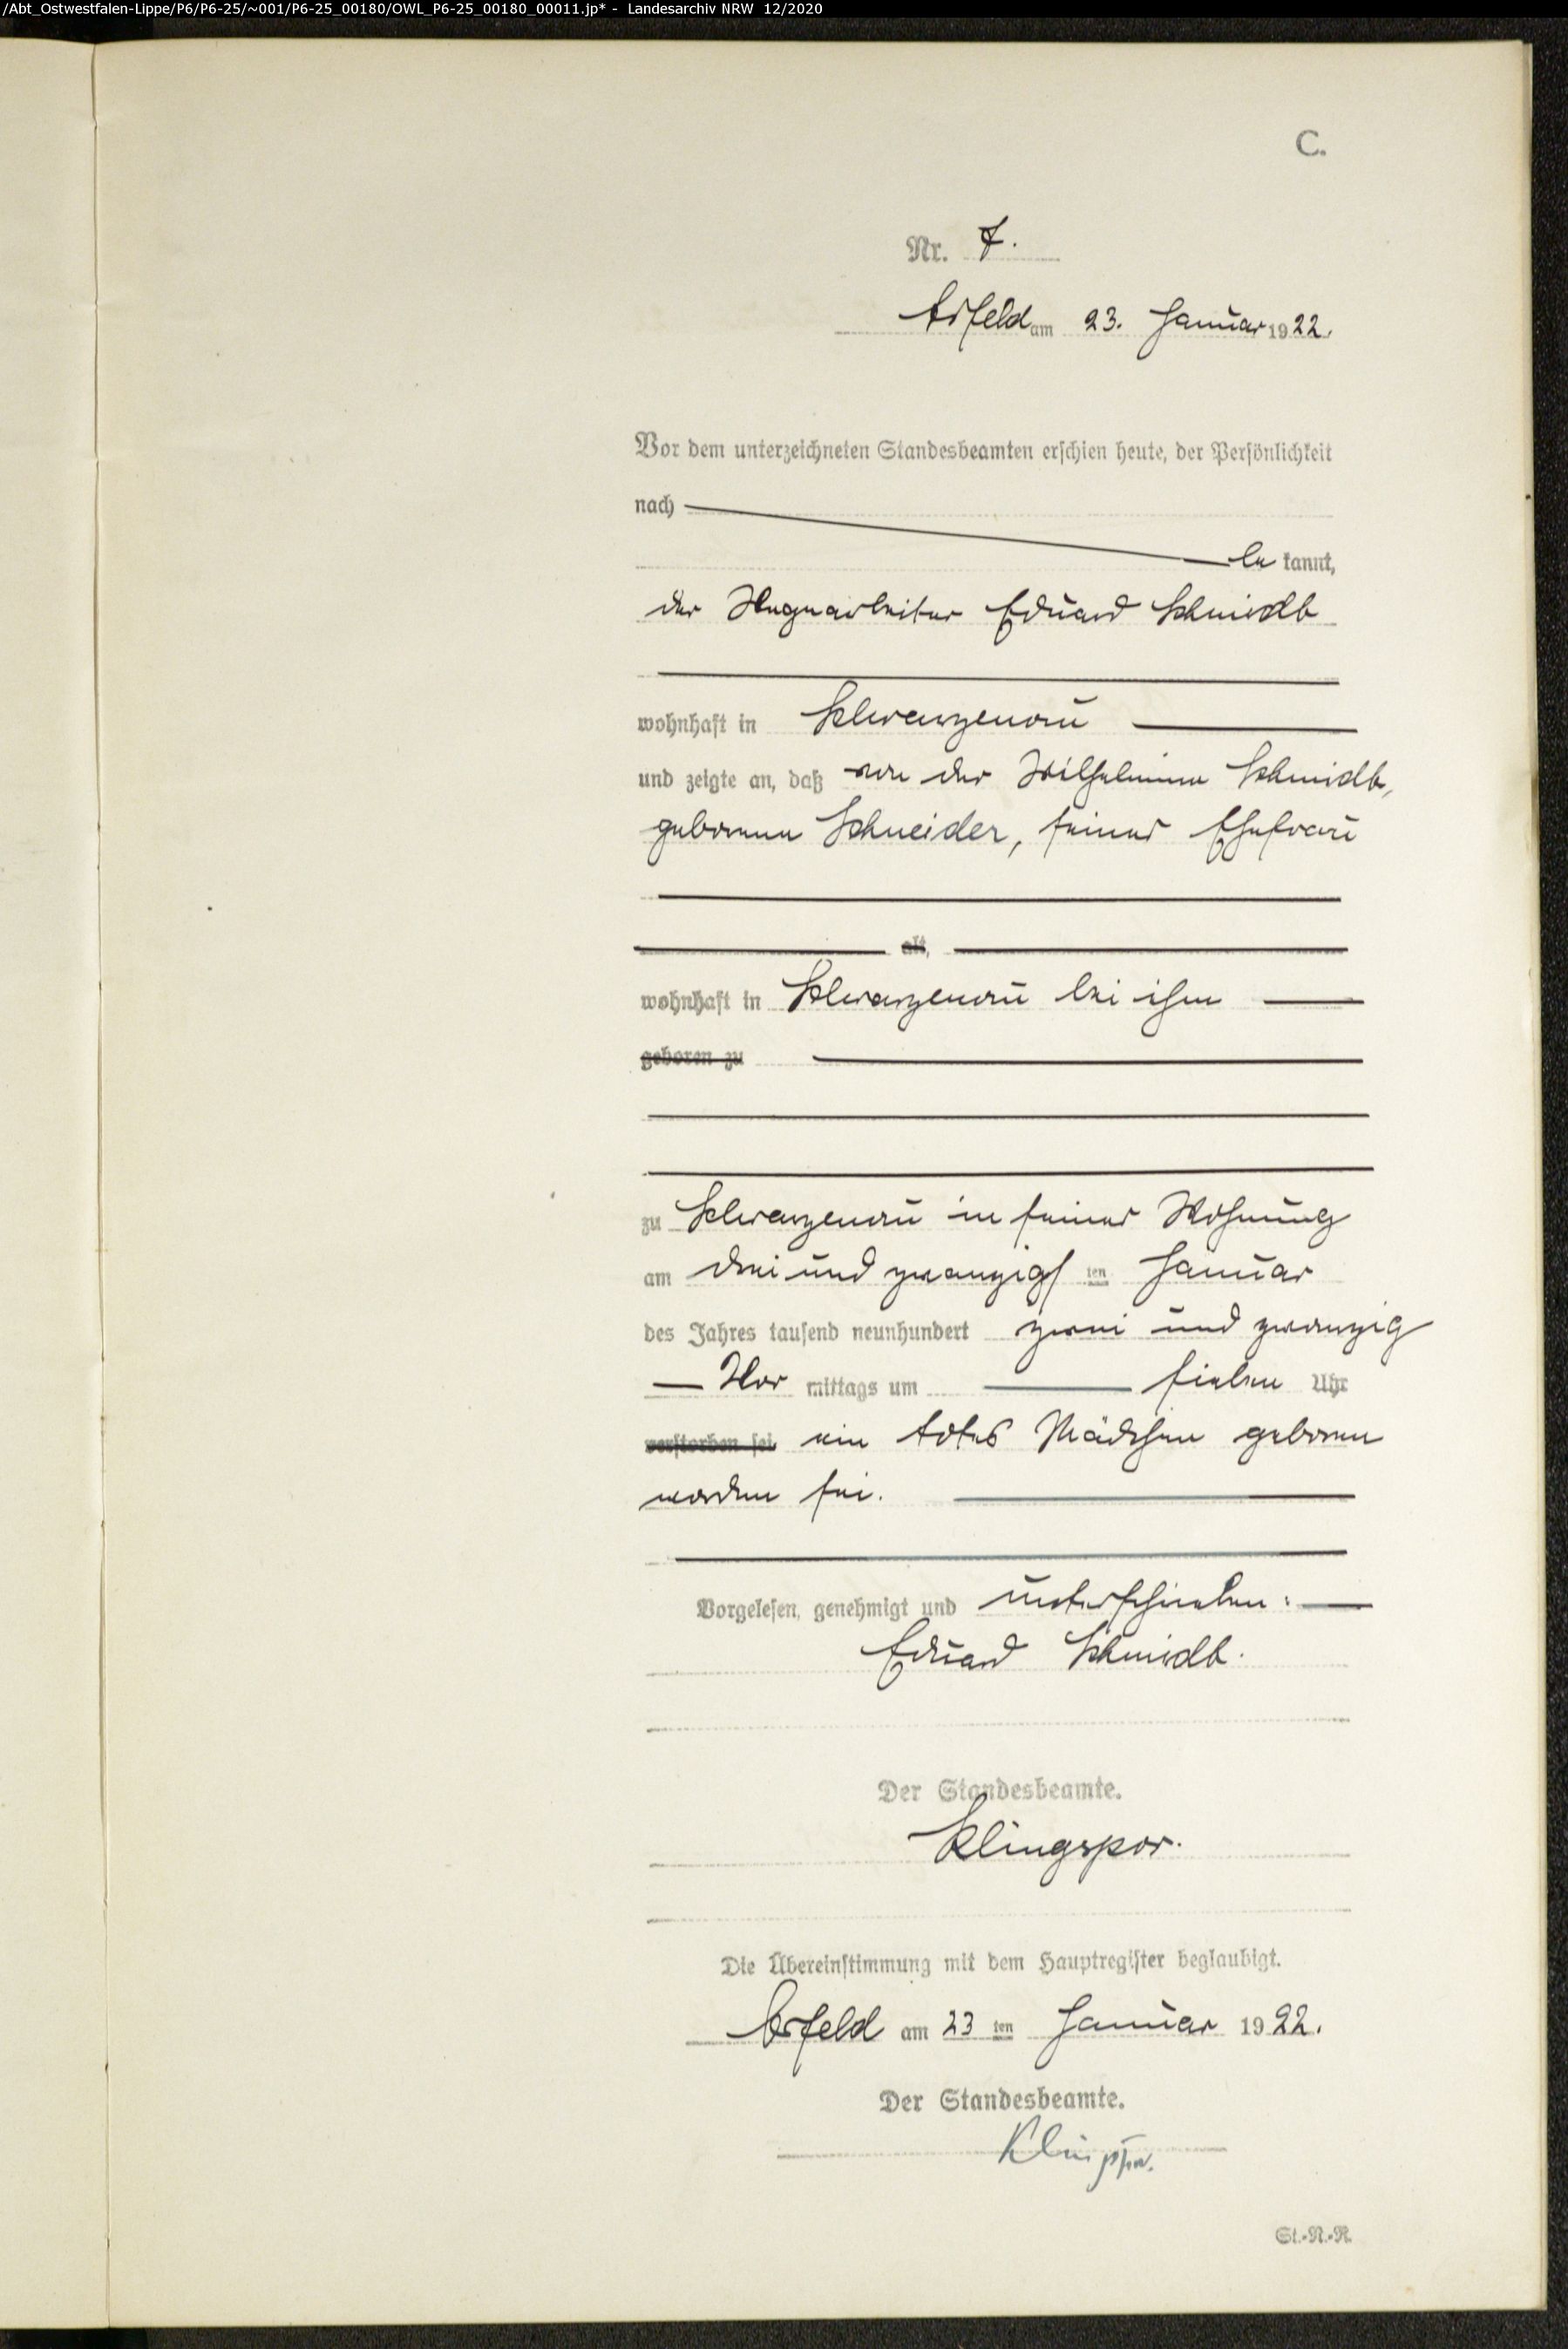 /Abt_Ostwestfalen-Lippe/P6/P6-25/~001/P6-25_00180/OWL_P6-25_00180_00011.jp* - Landesarchiv NRW 12/2020
C.
Nr. 7.
Arfeld am 23. Januar 1922.
Vor dem unterzeichneten Standesbeamten erschien heute, der Persönlichkeit
nach
be kannt,
der Wegearbeiter Eduard Schmidt
wohnhaft in Schwarzenau
und zeigte an, daß von der Wilhelmine Schmidt,
geborenen Schneider, seiner Ehefrau
alt,
wohnhaft in Schwarzenau bei ihm
geboren zu
zu Schwarzenau in seiner Wohnung
am drei und zwanzigs ten Januar
des Jahres tausend neunhundert zwei und zwanzig
Vor mittags um sieben Uhr
verstorben sei ein totes Mädchen geboren
worden sei.
Vorgelesen, genehmigt und unterschrieben:
Eduard Schmidt.
Der Standesbeamte.
Klingspor.
Die Übereinstimmung mit dem Hauptregister beglaubigt.
Arfeld am 23 ten Januar 1922.
Der Standesbeamte.
Klingspor.
St.-N.-R.